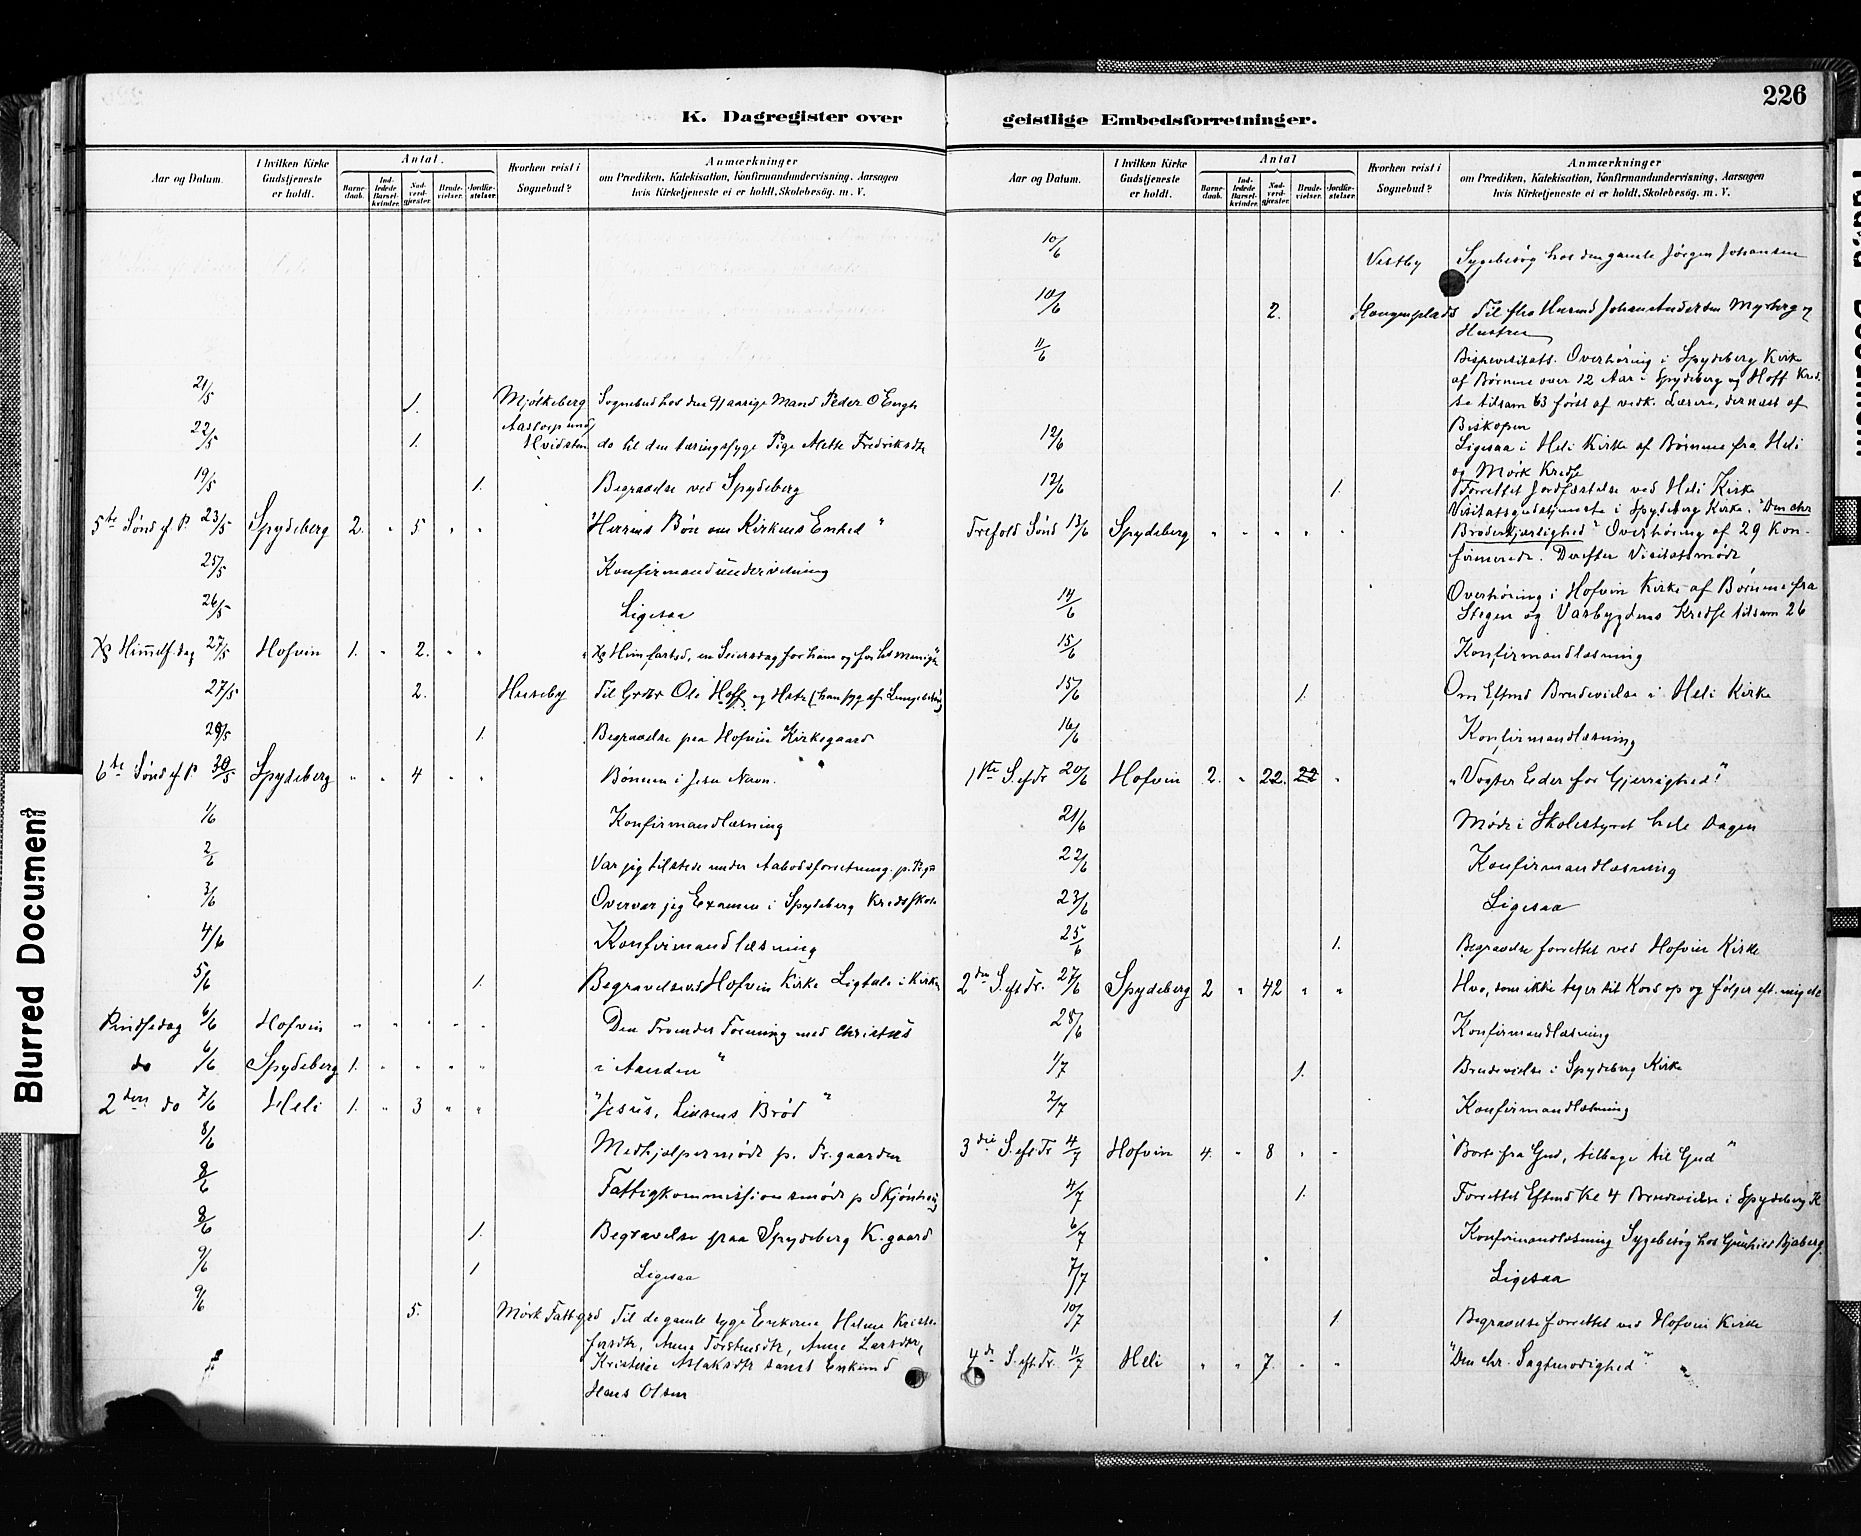 226
K. Dagregister over geistlige Embedsforretninger.
Aar og Datum. | I hvilken Kirke Gudstjeneste er holdt. | Antal. | Barnedaab. | Indledede Barselkvinder. | Nadverdgjester. | Brudevielser. | Jordfæstelser. | Hvorhen reist i Sognebud? | Anmærkninger om Prædiken, Katekisation, Konfirmandundervisning, Aarsagen hvis Kirketjeneste ei er holdt, Skolebesøg. m. V.
21/5 1. Mjølkeberg Sognebud hos den 91 aarige Mand Peder O
22/5 1. Hvidsten do til den tæringssyge Pige Mette Fredriksdtr
19/5 1. Begravelse ved Spydeberg
5te Sønd. ef. P. 23/5 Spydeberg 2. " 5 " " "Herrens Bøn om Kirkens Enhed"
25/5 Konfirmandundervisning
26/5 Ligesaa
Himmelf. dag 27/5 Hofvin 1. " 2. " " en Seiersdag for ham og for hs menighd"
27/5 2. Huseby Til Ole Hoff og
29/5 1. Begravelse paa Hofvin Kirkegaard
6te Sønd ef P 30/5 Spydeberg " " 4 " " Bønnen i Jesu Navn.
1/6 Konfirmandlæsning
2/6 Var jeg tilstede under Aabodsforretning. p.
3/6 Overvar jeg Examen i Spydeberg Kredsskole
4/6 Konfirmandlæsning
5/6 1. Begravelse ved Hofvin Kirke Ligtale i Kirken
Pindsedag 6/6 Hofvin " " " " " Den Troendes Forening med Christus
do 6/6 Spydeberg 1. " " " " i Aanden"
2den do 7/6 Heli 1. " 3 " " "Jesus, Livsens Brød"
8/6 Medhjælpermøde p. Pr.gaarden
8/6 Fattigkommissionsmøde p
8/6 1. Begravelse paa Spydeberg K.gaard
9/6 1 Ligesaa
9/6 5. Mørk Fattgrd Til de gamle syge Enkerne Helene Kristo-
fersdtr, Anne Torstensdtr, Anne Larsdtr,
Kristine Aslaksdtr samt Enkemd
Hans Olsen
K. Dagregister over geistlige Embedsforretninger.
Aar og Datum. | I hvilken Kirke Gudstjeneste er holdt. | Antal | Barnedaab. | Indledede Barselkvinder. | Nadverdgjester. | Brudevielser. | Jordfæstelser. | Hvorhen reist i Sognebud? | Anmærkninger om Prædiken, Katekisation, Konfirmandundervisning, Aarsagen hvis Kirketjeneste ei er holdt, Skolebesøg. m. V.
10/6 Vestby Sygebesøg hos den gamle Jørgen Johansen
10/6 2. Haugenplads Til Johan Andersen Myrberg og
Hustru
11/6 Bispevisitats. Overhøring i Spydeberg Kirke
af Børnene over 12 Aar i Spydeberg og Hoff Kred-
se tilsam 63 først af vedk. Lærere, dernæst af
Biskopen
12/6 Ligesaa i Heli Kirke af Børnene fra Heli
og Mørk Kredse
12/6 1. Forrettet Jordfæstelse ved Heli Kirke
Trefold Sønd 13/6 Spydeberg " " " " " Visitatsgudstjeneste i Spydeberg Kirke. "Den chr
Broderkjærlighed" Overhøring af 29 Kon-
firmerede. Derefter Visitatsmøde
14/6 Overhøring i Hofvin Kirke af Børnene fra
Stegen og Vasbygdens Kredse tilsam 26
15/6 Konfirmandlæsning
15/6 1. Om Eftmd Brudevielse i Heli Kirke
16/6 Konfirmandlæsning
1ste S. ef Tr 20/6 Hofvin 2. " 22. 22 " "Vogter Eder for Gjerrighed!"
21/6 Møde i Skolestyret hele Dagen
22/6 Konfirmandlæsning
23/6 Ligesaa
25/6 1. Begravelse forrettet ved Hofvin Kirke
2den S. eft Tr. 27/6 Spydeberg 2 " 42 " " Hvo, som ikke tager sit Kors op og følger eft. mig etc
28/6 Konfirmandlæsning
1/7 1. Brudevielse i Spydeberg Kirke
2/7 Konfirmandlæsning
3die S. eft Tr 4/7 Hofvin 4. " 8 " " "Bort fra Gud, tilbage til Gud"
4/7 1. Forrettet Eftmd Kl 4 Brudevielse i Spydeberg K
6/7 Konfirmandlæsning Sygebesøg hos
7/7 Ligesaa
10/7 1. Begravelse forrettet ved Hofvin Kirke
4de S. eft. Tr. 11/7 Heli " " 7. " " "Den chr. Sagtmodighed"
Blurred Document